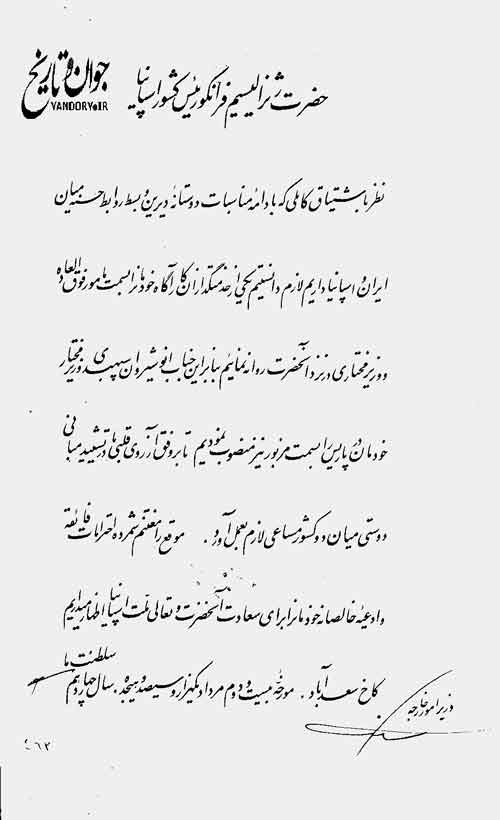 جوان و تاریخ
YANDORY.IR
حضرت ژنرالیسیم فرانکو رئیس کشور اسپانیا
نظر باشتیاق کاملی که بادامهٔ مناسبات دوستانهٔ دیرین و بسط روابط حسنه میان
ایران و اسپانیا داریم لازم دانستیم یکی از خدمتگذاران کارآگاه خودمانرا بسمت مامور فوق العاده
و وزیر مختاری در نزد آنحضرت روانه نمائیم بنابراین جناب انوشیروان سپهبدی وزیر مختار
خودمان در پاریس را بسمت مزبور نیز منصوب نمودیم تا بر وفق آرزوی قلبی ما در تشیید مبانی
دوستی میان دو کشور مساعی لازم بعمل آورد. موقع را مغتنم شمرده احترامات فائقه
و ادعیهٔ خالصانه خودمانرا برای سعادت آنحضرت و تعالی ملت اسپانیا اظهار میداریم
کاخ سعدآباد. مورخهٔ بیست و دوم مرداد یکهزار و سیصد و هیجده. سال چهاردهم سلطنت ما
وزیر امور خارجه